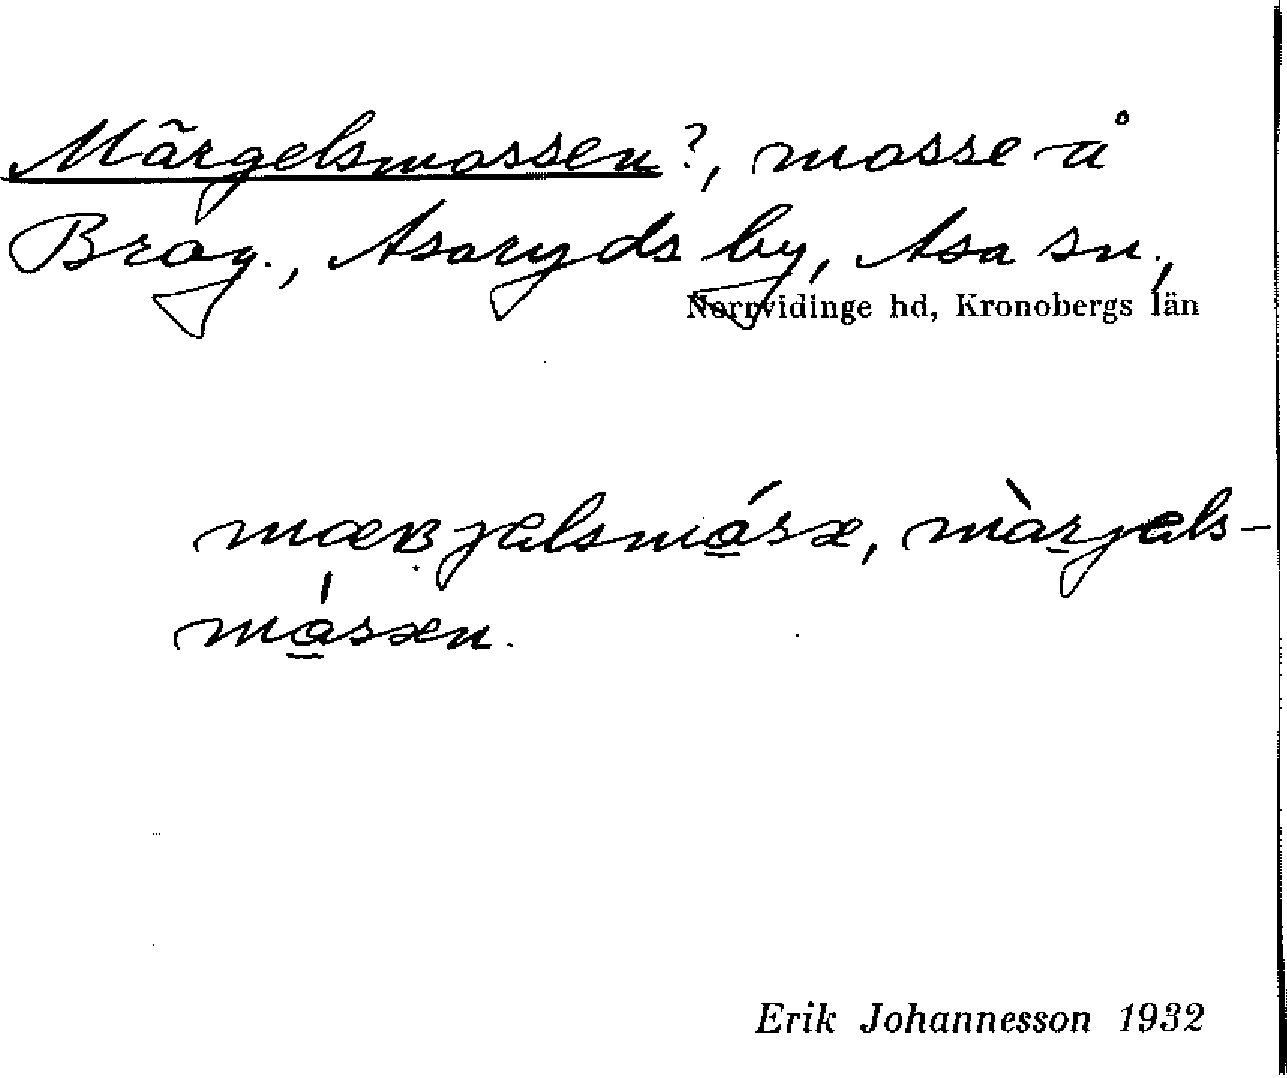 Märgelsmossen?, mosse å
Brag., Asaryds by, Asa sn.,
Norrvidinge hd, Kronobergs län
mæʀjəlsmósə, màrjəls-
mósən.
Erik Johannesson 1932